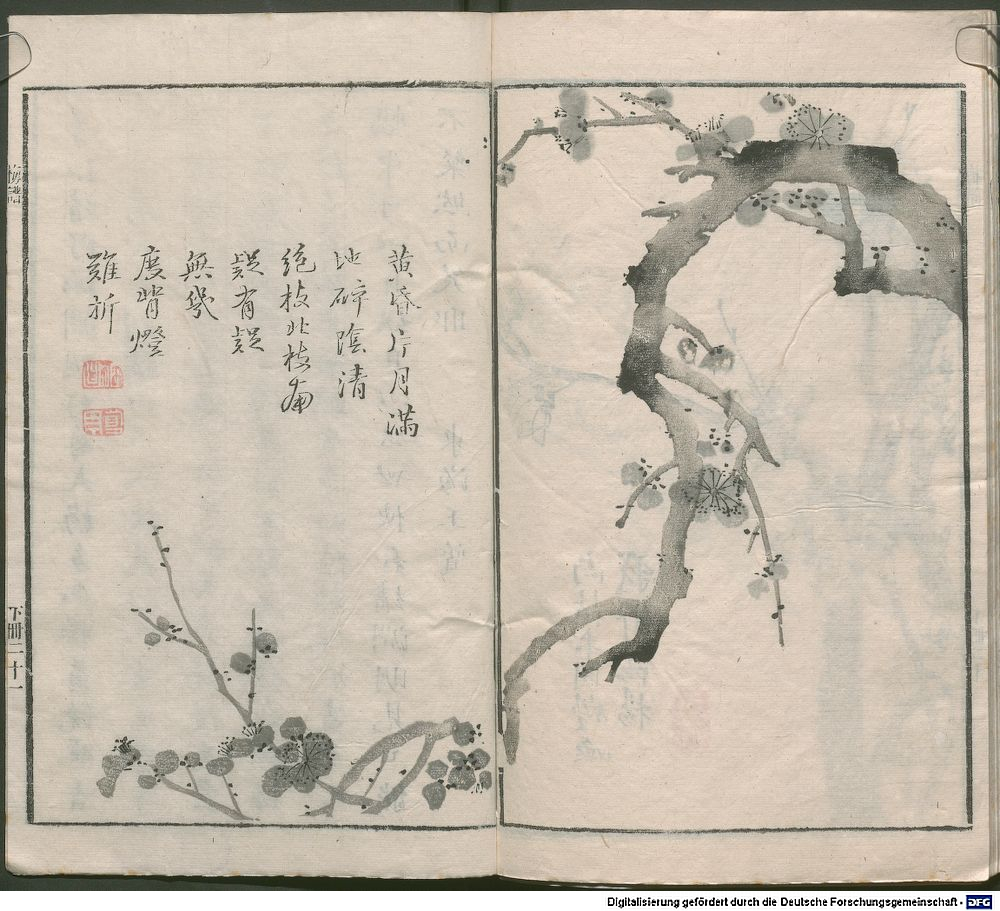 黄昏片月滿
地碎陰清
絶枝北枝南
疑有疑
無幾
度背燈
難折
梅譜
下冊二十一
Digitalisierung gefördert durch die Deutsche Forschungsgemeinschaft - DFG